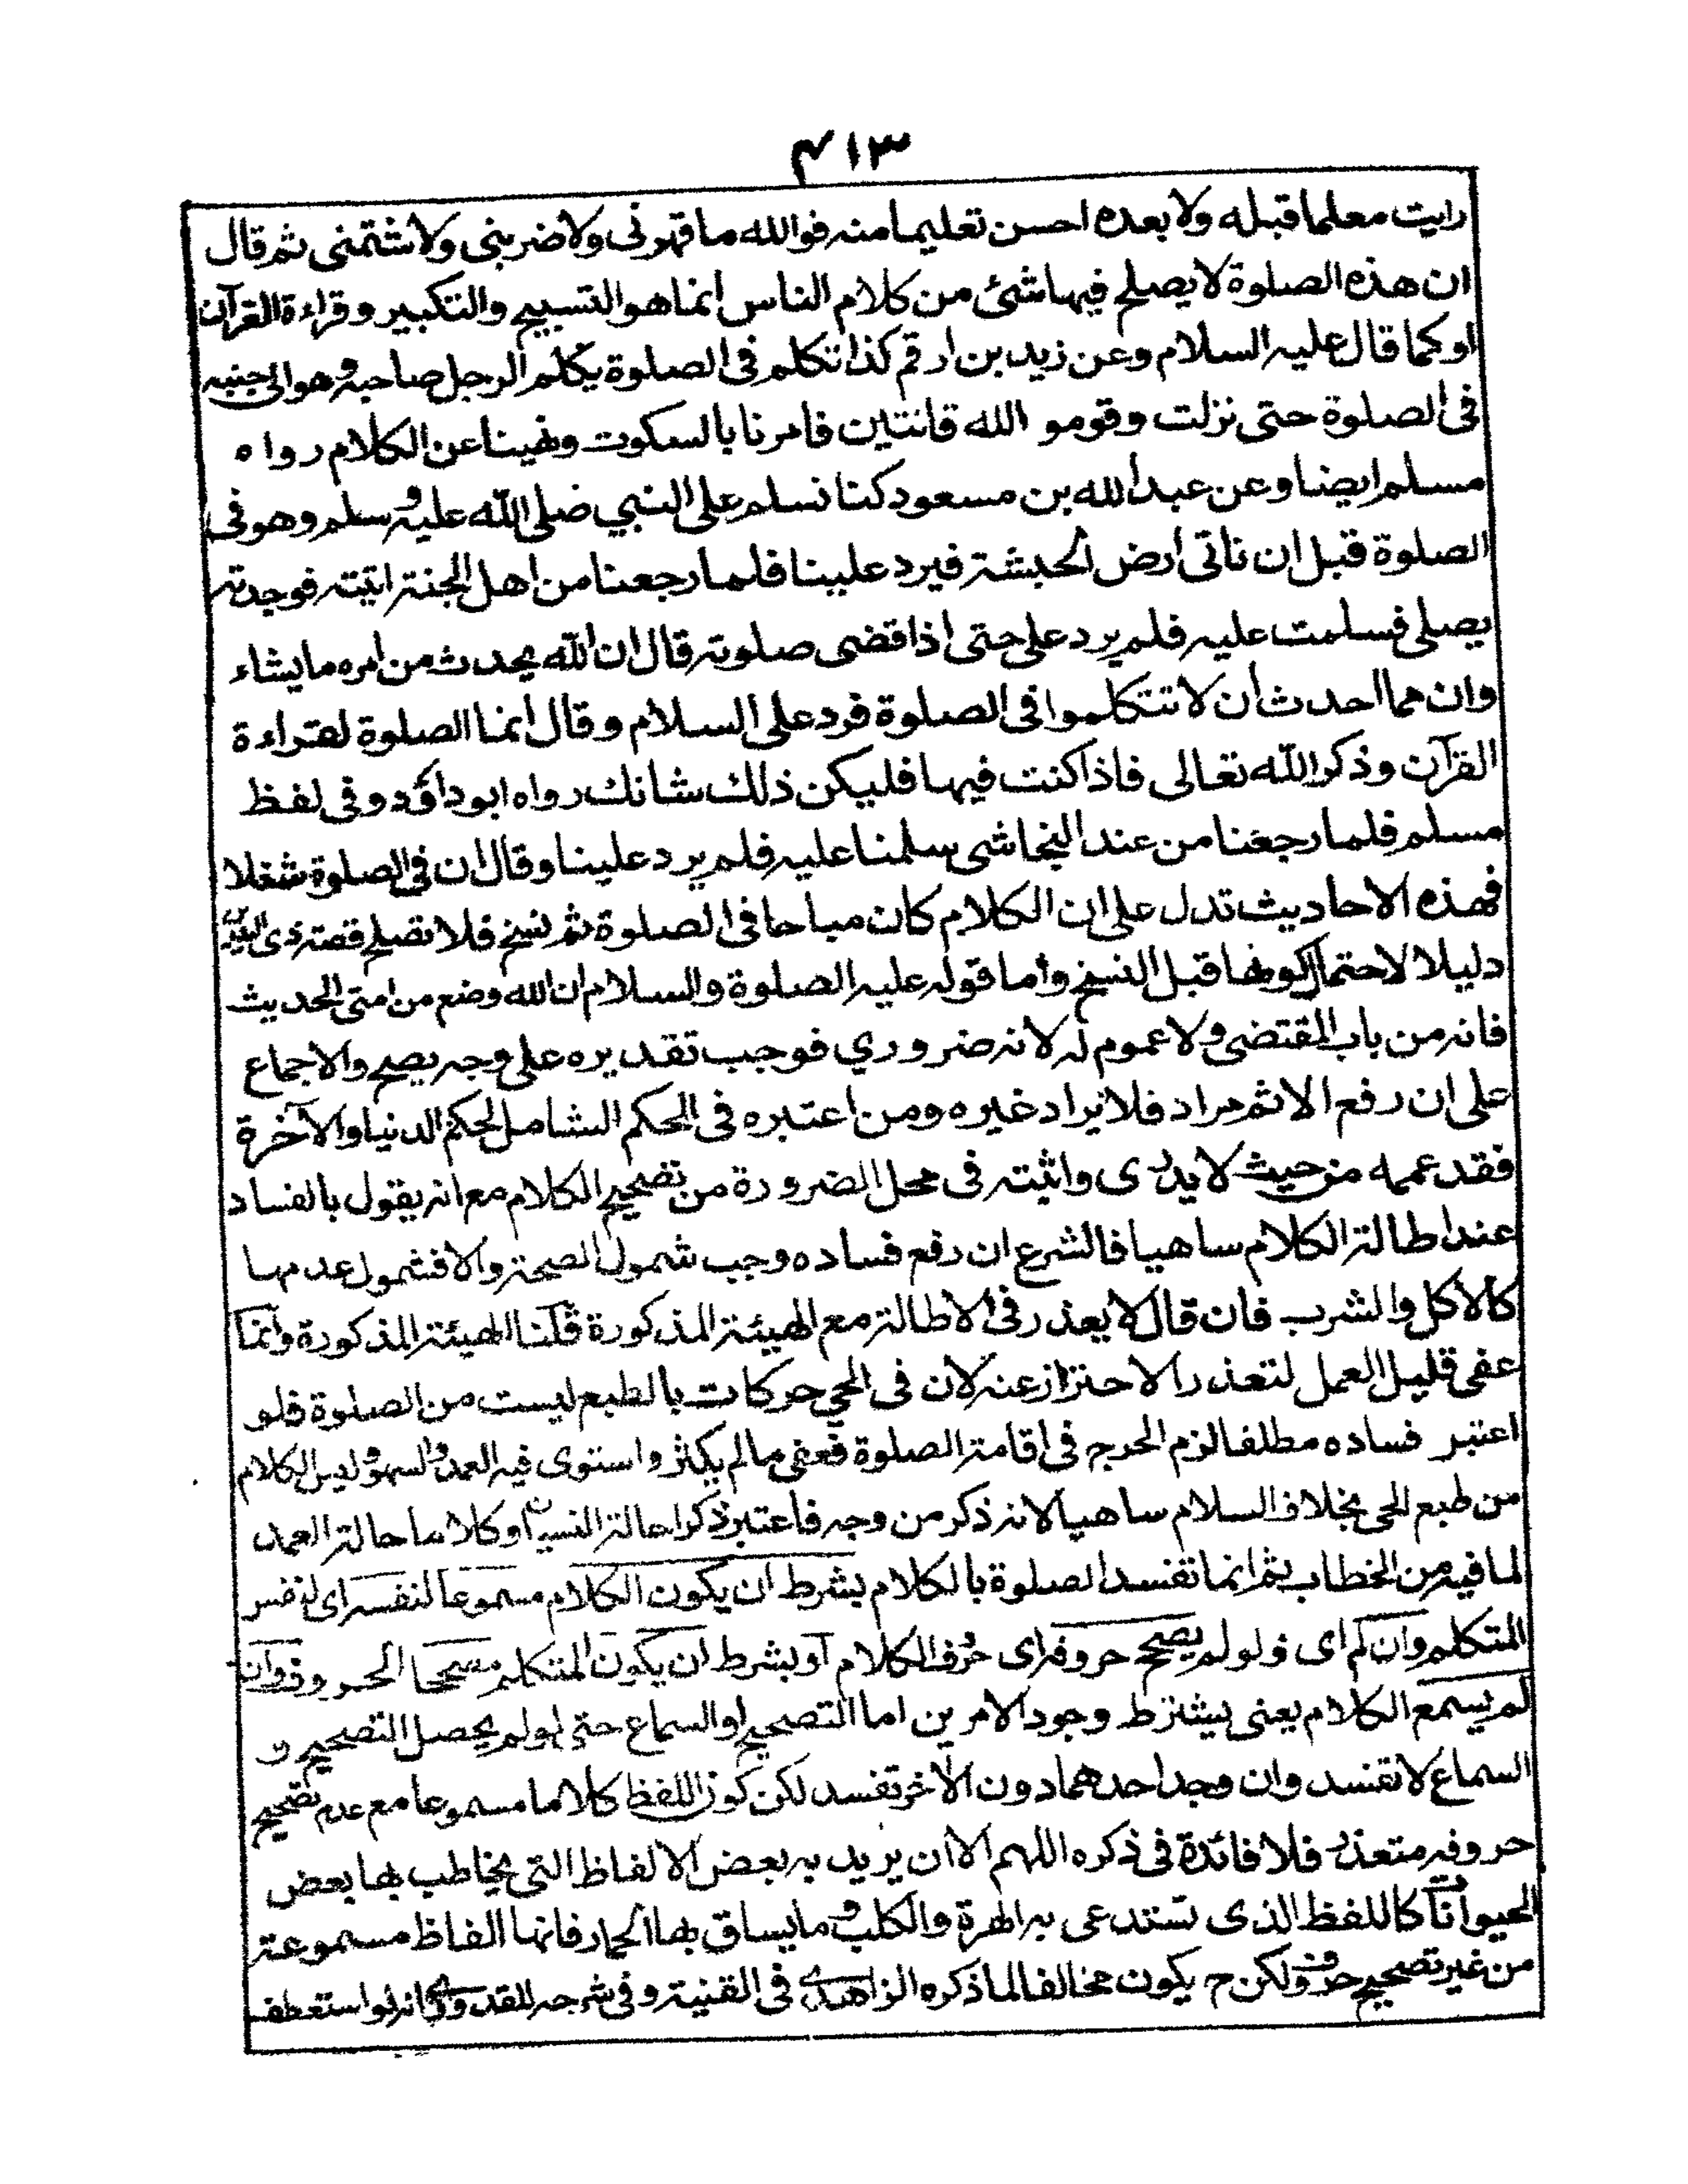 ٤١٣
رايت معلما قبله ولا بعده احسن تعليما منه فوالله ما قهرنى ولا ضربنى ولا شتمنى ثم قال
ان هذه الصلوة لا يصلح فيها شئ من كلام الناس انما هو التسبيح والتكبير وقراءة القرآن
او كما قال عليه السلام وعن زيد بن ارقم كنا نتكلم فى الصلوة يكلم الرجل صاحبه وهو الى جنبه
فى الصلوة حتى نزلت وقومو الله قانتين فامرنا بالسكوت ونهينا عن الكلام رواه
مسلم ايضا وعن عبد الله بن مسعود كنا نسلم على النبي صلى الله عليه وسلم وهو فى
الصلوة قبل ان ناتى ارض الحبشة فيرد علينا فلما رجعنا من اهل الجنة اتيته فوجدته
يصلى فسلمت عليه فلم يرد على حتى اذا قضى صلوته قال ان الله يحدث من امره ما يشاء
وان مما احدث أن لا تتكلموا فى الصلوة فرد على السلام وقال انما الصلوة لقراءة
القرآن وذكر الله تعالى فاذا كنت فيها فليكن ذلك شانك رواه ابو داؤد وفى لفظ
مسلم فلما رجعنا من عند النجاشى سلمنا عليه فلم يرد علينا وقال ان فى الصلوة شغلا
فهذه الاحاديث تدل على ان الكلام كان مباحا فى الصلوة ثم نسخ فلا تصلح قصة ذى اليدين
دليلا لاحتمال كونها قبل النسخ وأما قوله عليه الصلوة والسلام ان الله وضع من امتى الحديث
فانه من باب المقتضى ولا عموم له لانه ضروري فوجب تقديره على وجه يصح والاجماع
على ان رفع الاثم مراد فلا يراد غيره ومن اعتبره فى الحكم الشامل لحكم الدنيا والآخرة
فقد عممه من حيث لا يدرى واثبته فى محل الضرورة من تصحيح الكلام مع انه يقول بالفساد
عند اطالة الكلام ساهيا فالشرع ان رفع فساده وجب شمول الصحة والا فشمول عدمها
كالاكل والشرب فان قال لا يعذر فى الاطالة مع الهيئة المذكورة قلنا الهيئة المذكورة وانما
عفى قليل العمل لتعذر الاحتراز عنه لان فى الحي حركات بالطبع ليست من الصلوة فلو
اعتبر فساده مطلقا لزم الحرج فى اقامة الصلوة فعفى ما لم يكثر واستوى فيه العمد والسهو وليس الكلام
من طبع الحى بخلاف السلام ساهيا لانه ذكر من وجه فاعتبر ذكرا حالة النسيان وكلاما حالة العمد
لما فيه من الخطاب ثم انما تفسد الصلوة بالكلام بشرط ان يكون الكلام مسموعا لنفسه اى لنفس
المتكلم وان لم اى ولو لم يصحح حروفه اى حرف الكلام او بشرط ان يكون المتكلم مصححا الحروف وان
لم يسمع الكلام يعنى يشترط وجود الامرين اما التصحيح او السماع حتى لو لم يحصل التصحيح و
السماع لا تفسد وان وجد احدهما دون الآخر تفسد لكن كون اللفظ كلاما مسموعا مع عدم تصحيح
حروفه متعذر فلا فائدة فى ذكره اللهم الا ان يريد به بعض الالفاظ التى يخاطب بها بعض
الحيوانات كاللفظ الذى تستدعى به الهرة والكلب وما يساق بها الحمار فانها الفاظ مسموعة
من غير تصحيح حروف ولكن ح يكون مخالفا لما ذكره الزاهدى فى القنية وفى شرحه للقدورى انه لو استعطف